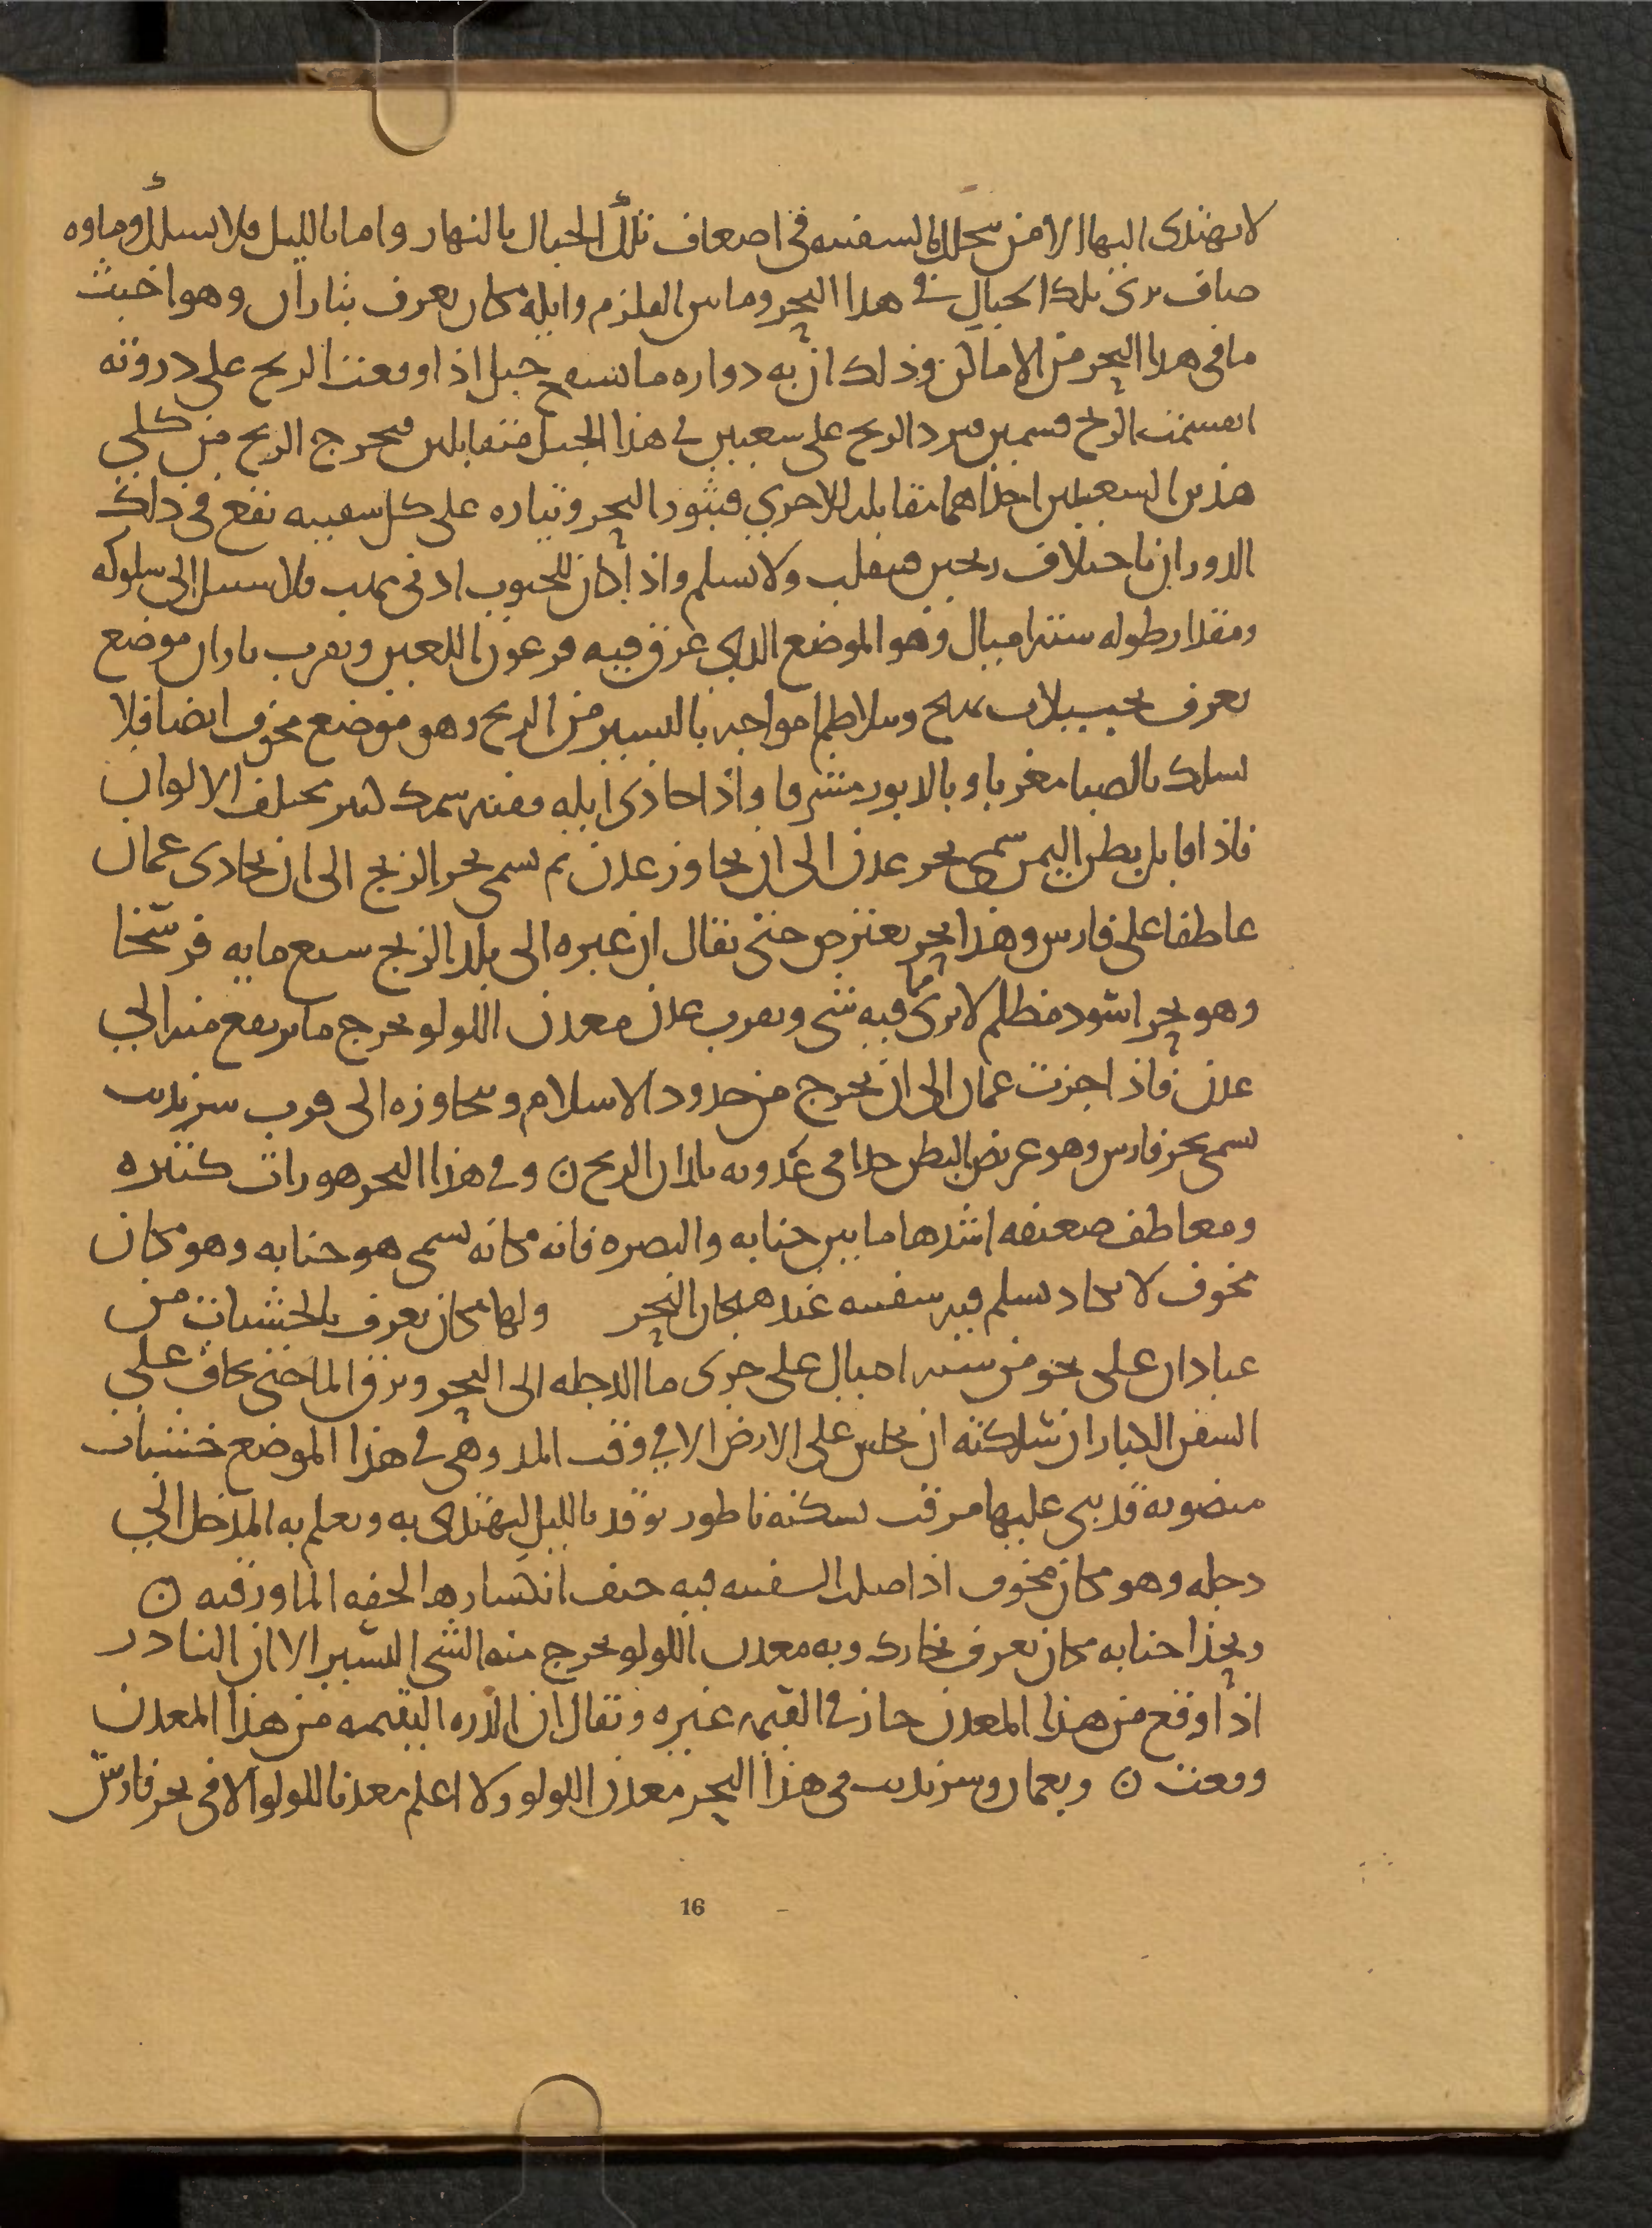 لا يهتدى اليها الا من يتخلل بالسفينه فى اضعاف تلك الجبال بالنهار واما بالليل فلا يسلك وماوه
صاف ترى تلك الجبال فى هذا البحر وما بين القلزم وايله مكان يعرف بتاران وهو اخبث
ما فى هذا البحر من الاماكن وذلك ان به دواره ما بسفح جبل اذا وقعت الريح على ذروته
انقسمت الريح قسمين فيرد الريح على شعبين فى هذا الجبل متقابلين فيخرج الريح من كلى
هذين الشعبين احداهما تقابله الاخرى فيثور البحر وتياره على كل سفينه تقع فى ذلك
الدوران باختلاف ريحين فينقلب ولا تسلم واذا كان للجنوب ادنى مهب فلا سبيل الى سلوكه
ومقدار طوله ستة اميال وهو الموضع الذى غرق فيه فرعون اللعين وبقرب تاران موضع
يعرف بجبيلات يهيج وتتلاطم امواجه باليسير من الريح وهو موضع مخوف ايضا فلا
يسلك بالصبا مغربا وبالدبور مشرقا واذا حاذى ايله ففيه سمك كثير مختلف الالوان
فاذا قابل بطن اليمن سمى بحر عدن الى ان يجاوز عدن ثم يسمى بحر الزنج الى ان يحاذى عمان
عاطفا على فارس وهذا بحر يعترض حتى يقال ان عبره الى بلد الزنج سبع مايه فرسخا
وهو بحر اسود مظلم لا يرى مما فيه شى وبقرب عدن معدن اللولو يخرج ما يرتفع منه الى
عدن فاذا جزت عمان الى ان تخرج من حدود الاسلام وتجاوزه الى قرب سرنديب
يسمى بحر فارس وهو عريض البطن جدا فى عدوته بلدان الزنج ن وفى هذا البحر هورات كثيره
ومعاطف صعبه اشدها ما بين جنابه والبصره فانه مكانه يسمى هور جنابه وهو مكان
مخوف لا يكاد يسلم فيه سفينه عند هيجان البحر ولها مكان يعرف بالخشبات من
عبادان على نحو من سته اميال على جرى ما الدجله الى البحر ويرق الما حتى يخاف على
السفن الكبار ان سلكته ان تجلس على الارض الا فى وقت المد وهى فى هذا الموضع خشبات
منصوبه قد بنى عليها مرقب يسكنه ناطور يوقد بالليل ليهتدى به ويعلم به المدخل الى
دجله وهو مكان مخوف اذا ضلت السفينه فيه خيف انكسارها لخفه الما ورقته ن
وبحذا جنابه مكان يعرف بخارك وبه معدن اللولو يخرج منه الشى اليسير الا ان النادر
اذا وقع من هذا المعدن جاز فى القيمه غيره ويقال ان الدره اليتيمه من هذا المعدن
وقعت ن وبعمان وسرنديب فى هذا البحر معدن اللولو ولا اعلم معدنا للولو الا فى بحر فارس
16